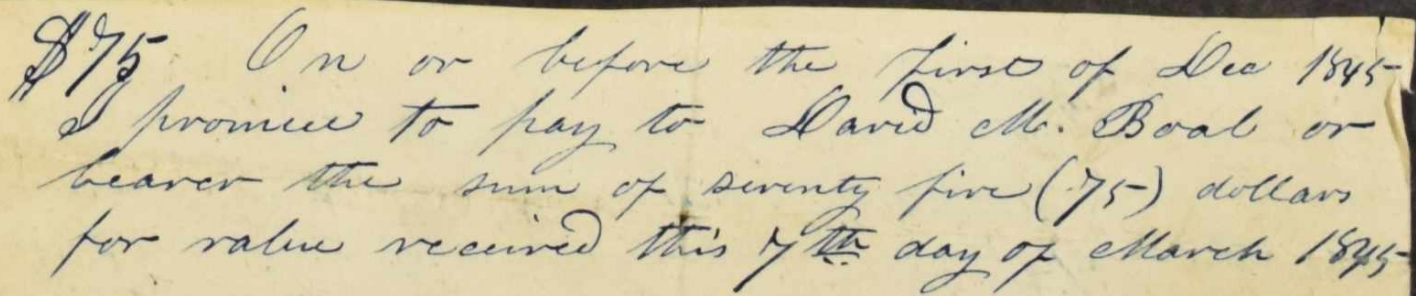 $75 On or before the first of Dec 1845
I promise to pay to David M. Boal or
bearer the sum of seventy five (75) dollars
for value received this 7th day of March 1845